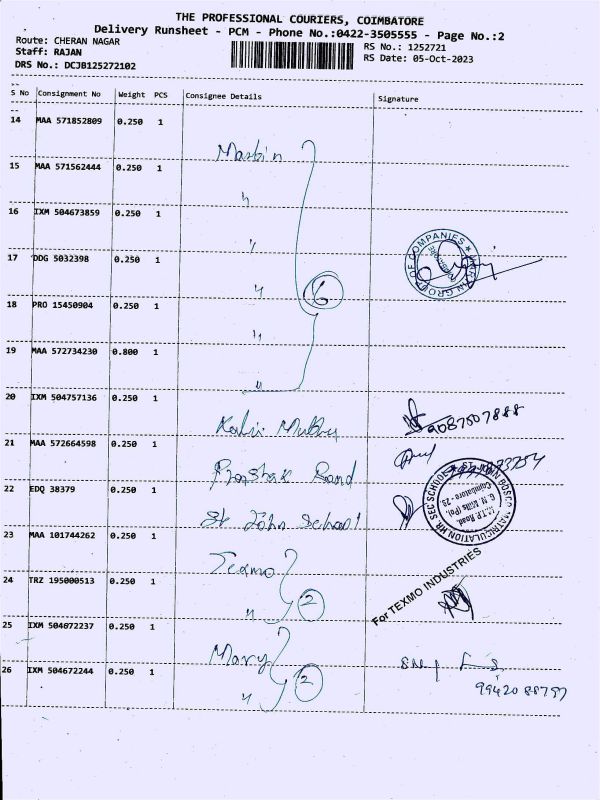 THE PROFESSIONAL COURIERS, COIMBATORE
Delivery Runsheet - PCM - Phone No.:0422-3505555 - Page No.:2
Route: CHERAN NAGAR
RS No.: 1252721
Staff: RAJAN
RS Date: 05-Oct-2023
DRS No.: DCJB125272102
S No Consignment No Weight PCS Consignee Details Signature
14 MAA 571852809 0.250 1
Martin
15 MAA 571562444 0.250 1
"
16 IXM 504673859 0.250 1
"
17 DDG 5032398 0.250 1
" 6
OF COMPANIES
18 PRO 15450904 0.250 1
"
19 MAA 572734230 0.800 1
"
20 IXM 504757136 0.250 1
9087507888
21 MAA 572664598 0.250 1
22 EDQ 38379 0.250 1
St John School
BOSCO MATRICULATION HR SEC SCHOOL
M.T.P. Road,
G. N. Mills (Po),
Coimbatore - 29.
23 MAA 101744262 0.250 1
Texmo
24 TRZ 195000513 0.250 1
" 2
For TEXMO INDUSTRIES
25 IXM 504672237 0.250 1
Mary
26 IXM 504672244 0.250 1
" 2
9942088797